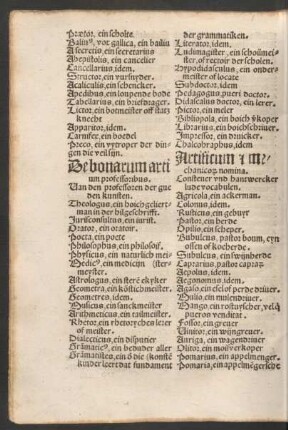 Pretor, ein scholte.
Baliuꝰ, vox gallica, ein bailiu
A secretis, ein secretarius
Abepistolis, ein canceler
Cancellarius, idem.
Structor, ein vursnyder.
Acaliculis, ein schencker.
Apedibus, ein loupende bode
Tabellarius, ein briefdrager.
Lictor, ein botmeister off statz
knecht
Apparitor, idem.
Carnifex, ein boedel
Preco, ein vytroper der din
gen die veil syn.
De bonarum arti
um professoribus.
Van den professoren der gue
den kunsten.
Theologus, ein hoich geliert
man in der hilgeschrifft.
Jurisconsultus, ein iurist.
Orator, ein oratoir.
Poeta, ein poete
Philosophus, ein philosoif.
Physicus, ein naturlich mei
Medicꝰ, ein medicijn (ster
meyster.
Astrologus, ein
Geometra, ein
Geometres, idem.
Musicus, ein sanckmeister
Arithmeticus, ein
Rhetor, ein rhetorychen lerer
of meister.
Dialecticus, ein disputier
Grāmaticꝰ, ein behuder aller
Grāmatistes, ein d die
kinder leert dat fundament
der grammatiken.
Literator, idem.
Ludimagister, ein schoilmei=
ster, of rectoir der scholen.
Hypodidasculus, ein onder=
meister of locate
Subdoctor, idem.
Pedagogus, pueri doctor.
Didascalus doctor, ein lerer.
Pictor, ein meler
Bibliopola, ein boich verkoper
Librarius, ein boichschriuer.
Impressor, ein drucker.
Chalcographus, idem
Artificum & me⸗
chanicorum nomina.
Constener vnd hantwercker
lude vocabulen.
Agricola, ein ackerman.
Colonus, idem.
Rusticus, ein gebuyr
Pastor, ein herde
Opilio, ein scheper.
Bubulcus, pastor boum, eyn
ossen of koeherde.
Subulcus, ein swynherde
Caprarius, pastor caprarum
Aepolus, idem.
Aegonomus, idem.
Agaso, ein esel of perde driuer
Mulio, ein mulendriuer.
Mango, ein rostuyscher, vel qui
pueros venditat.
Fossor, ein greuer
Vinitor, ein wyngreuer.
Auriga, ein wagendriuer
Olitor, ein moisverkoper
Pomarius, ein appelmenger.
Pomaria, ein appelmengersche